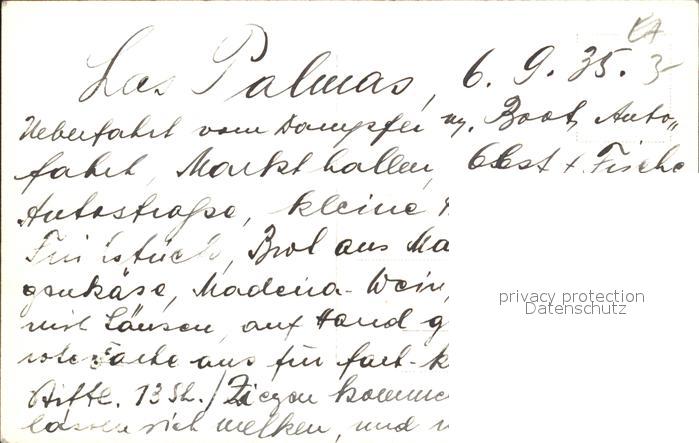 Las Palmas, 6. 9. 35.
Ueberfahrt vom Dampfer m. Boot, Auto„
fahrt, Markthallen, Obst + Fische
Autostraße, kleine
Frühstück, Brot aus Ma
genkäse, Madeira-Wein,
mit Läusen, auf Hand g
rote Farbe aus für
13 Sh./Ziegen komme
lassen sich melken, und
privacy protection
Datenschutz